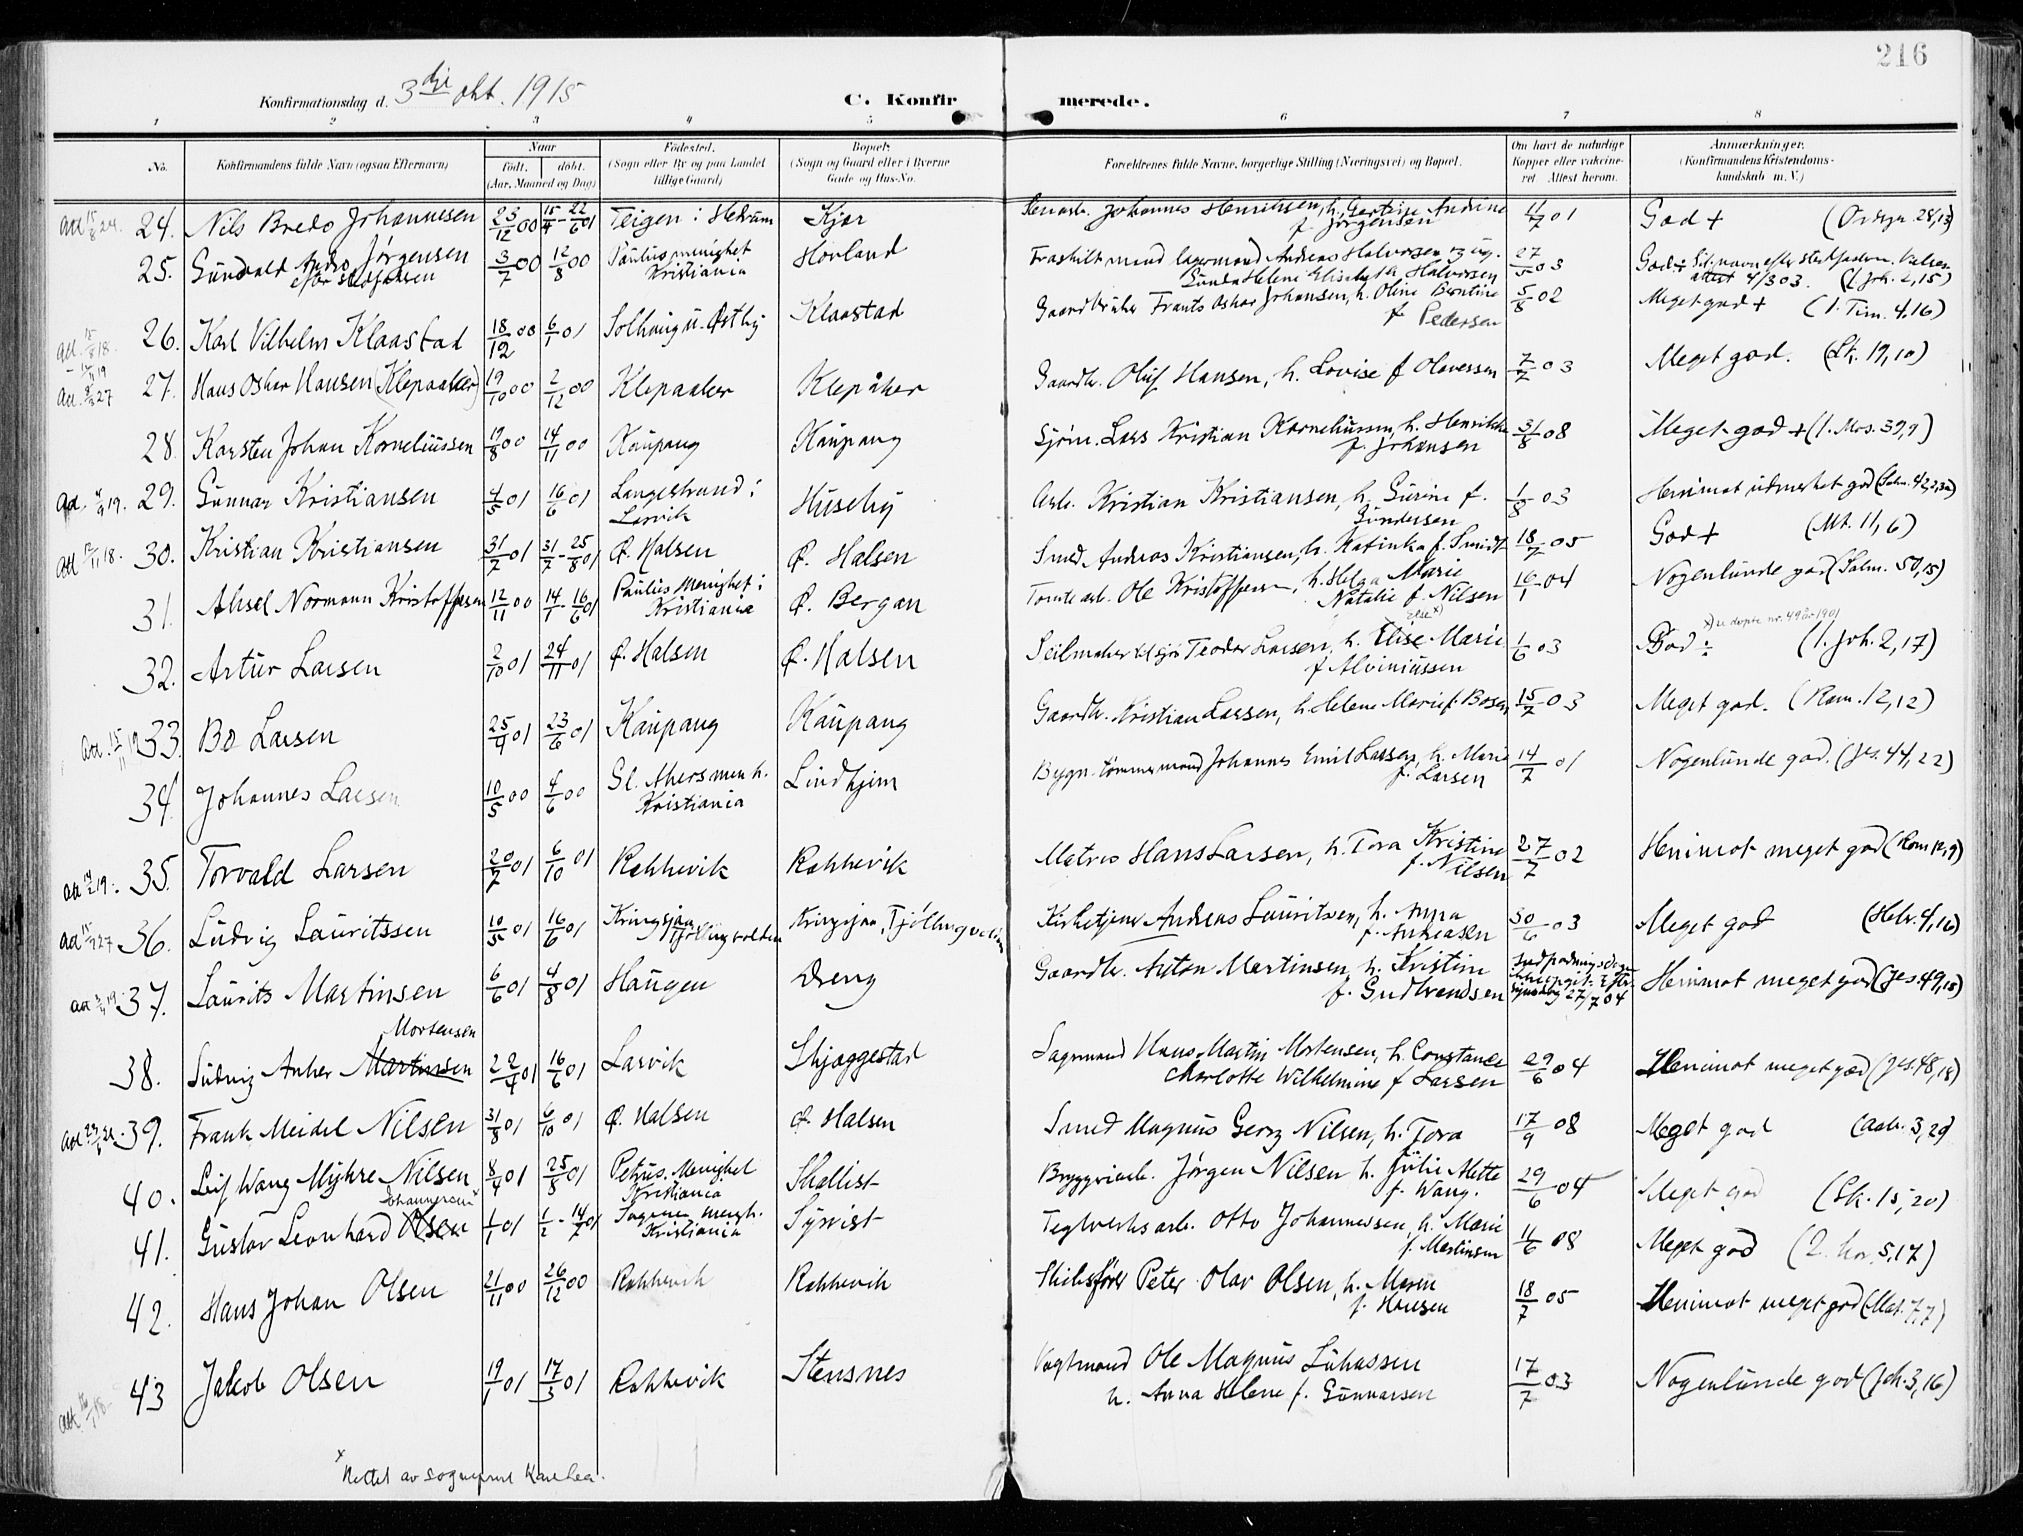 216
Konfirmationsdag d. 3dje okt. 1915 C. Konfir merede.
1 2 3 4 5 6 7 8
No. Konfirmandens fulde Navn (ogsaa Efternavn) Naar født. døbt. (Aar, Maaned og Dag) Fødested. (Sogn eller By og paa Landet tillige Gaard) Bopæl. (Sogn og Gaard eller i Byerne Gade og Hus-No. Forældrenes fulde Navne, borgerlige Stilling (Næringsvei) og Bopæl. Om havt de naturlige Kopper eller vakcineret. Attest herom. Anmærkninger. (Konfirmandens Kristendomskundskab m. V.)
Att 15/8 24. 24. Nils Bredo Johannesen 23/12 00 15/4 - 22/6 01 Teigen i Hedrum Kjær Johannes Henriksen, h. Andrine f. Jørgensen 11/7 01 God + (Ordspr. 28,13)
25. Gundvald Jørgensen efter stedfaren 3/7 00 12/8 00 Paulus menighet Kristiania Hovland Fraskilt mand lagermand Andreas Halvorsen og ug. Gunda Helene Elisabeth Halvorsen 27/5 03 God + attest 4/3 03. (1 Joh. 2,15)
Att. 15/8 18. 26. Karl Vilhelm Klaastad 18/12 00 6/1 01 Solhaug u. Østby Klaastad Gaardbruker Frants Oskar Johansen, h. Oline Berntine f. Pedersen 5/8 02 Meget god + (1. Tim. 4,16)
Att. 27. Hans Oskar Hansen (Klepaaker) 19/10 00 2/12 00 Klepaaker Klepåker Gaardbr. Oluf Hansen, h. Lovise f. Olavessen 7/7 03 Meget god. (Lk. 19,10)
28. Karsten Johan Korneliussen 19/8 00 14/11 00 Kaupang Kaupang Sjøm. Lars Kristian Korneliussen, h. Henrikke f. Johansen 31/8 08 Meget god + (1. Mos. 39,9)
29. Gunnar Kristiansen 4/5 01 16/6 01 Langestrand i Larvik Huseby Arb. Kristian Kristiansen, h. Gurine f. Gundersen 1/8 03 Henimot udmerket god
Att 18. 30. Kristian Kristiansen 31/7 01 31/7 - 25/8 01 Ø. Halsen Ø. Halsen Smed Andreas Kristiansen, h. Katinka f. Smidt 18/7 05 God + (Mt. 11,6)
31. Aksel Normann Kristoffersen 12/11 00 14/1 - 16/6 01 Paulus Menighet i Kristiania Ø. Bergan Tomtearb. Ole Kristoffersen, h. Helga Marie Natalie f. Nilsen 16/1 04 Nogenlunde god (Salm. 50,15)
32. Artur Larsen 2/10 01 24/11 01 Ø. Halsen Ø. Halsen Seilmaker Teodor Larsen, h. Elise Marie f. Alviniussen Else x) 1/6 03 God ÷ (1. Joh. 2,17)
33. Bo Larsen 25/4 01 23/6 01 Kaupang Kaupang Gaardbr. Kristian Larsen, h. Helene Marie f. Bosen 15/7 03 Meget god. (Rom. 12,12)
34. Johannes Larsen 10/5 00 4/6 00 Gl. Akers menh. Kristiania Lindhjem Bygn. tømmermand Johannes Emil Larsen, h. Marie f. Larsen 14/7 01 Nogenlunde god. (Jes. 44,22)
35. Torvald Larsen 20/7 01 6/10 01 Rakkevik Rakkevik Matros Hans Larsen, h. Tora Kristine f. Nilsen 27/7 02 Henimot meget god
36. Ludvig Lauritssen 10/5 01 16/6 01 Kringsjaa Kringsjaa, Kirketjener Andreas Lauritsen, h. Anna f. Andreasen 30/6 03 Meget god (Hebr. 4,16)
37. Laurits Martinsen 6/6 01 4/8 01 Haugen Dreng Gaardbr. Anton Martinsen, h. Kristine f. Gudbrandsen 27/7 04 Henimot meget god (Jes. 49,15)
38. Ludvig Anker Martinsen Mortensen 22/4 01 16/6 01 Larvik Skjæggestad Sagmand Hans Martin Mortensen, h. Constance Charlotte Wilhelmine f. Larsen 29/6 04 Henimot meget god (Jes. 48,18)
39. Frank Meidel Nilsen 31/8 01 6/10 01 Ø. Halsen Ø. Halsen Smed Magnus Georg Nilsen, h. Tora 17/9 08 Meget god
40. Leif Wang Myhre Nilsen 8/4 01 25/5 01 Petrus. Menighet Kristiania Skallist Bryggeriarb. Jørgen Nilsen h. Julie Mette f. Wang. 29/6 04 Meget god (Lk. 15,20)
41. Gustav Leonhard Olsen Johannesen x 1/1 01 1/2 - 14/7 01 Sagene menigh. Kristiania Syrist Teglverksarb. Otto Johannessen, h. Marie f. Martinsen 11/6 08 Meget god (2. Kor. 5,17)
42. Hans Johan Olsen 21/11 00 26/12 00 Rakkevik Rakkevik Skibsfører Peter Olav Olsen, h. Maren f. Hansen 18/7 05 Henimot meget god (Mat. 7,7)
43 Jakob Olsen 19/1 01 17/3 01 Rakkevik Stensnes Vagtmand Ole Magnus Lukassen h. Anna Helene f. Gunnarsen 17/7 03 Nogenlunde god (Joh. 3,16)
x Rettet av sogneprest